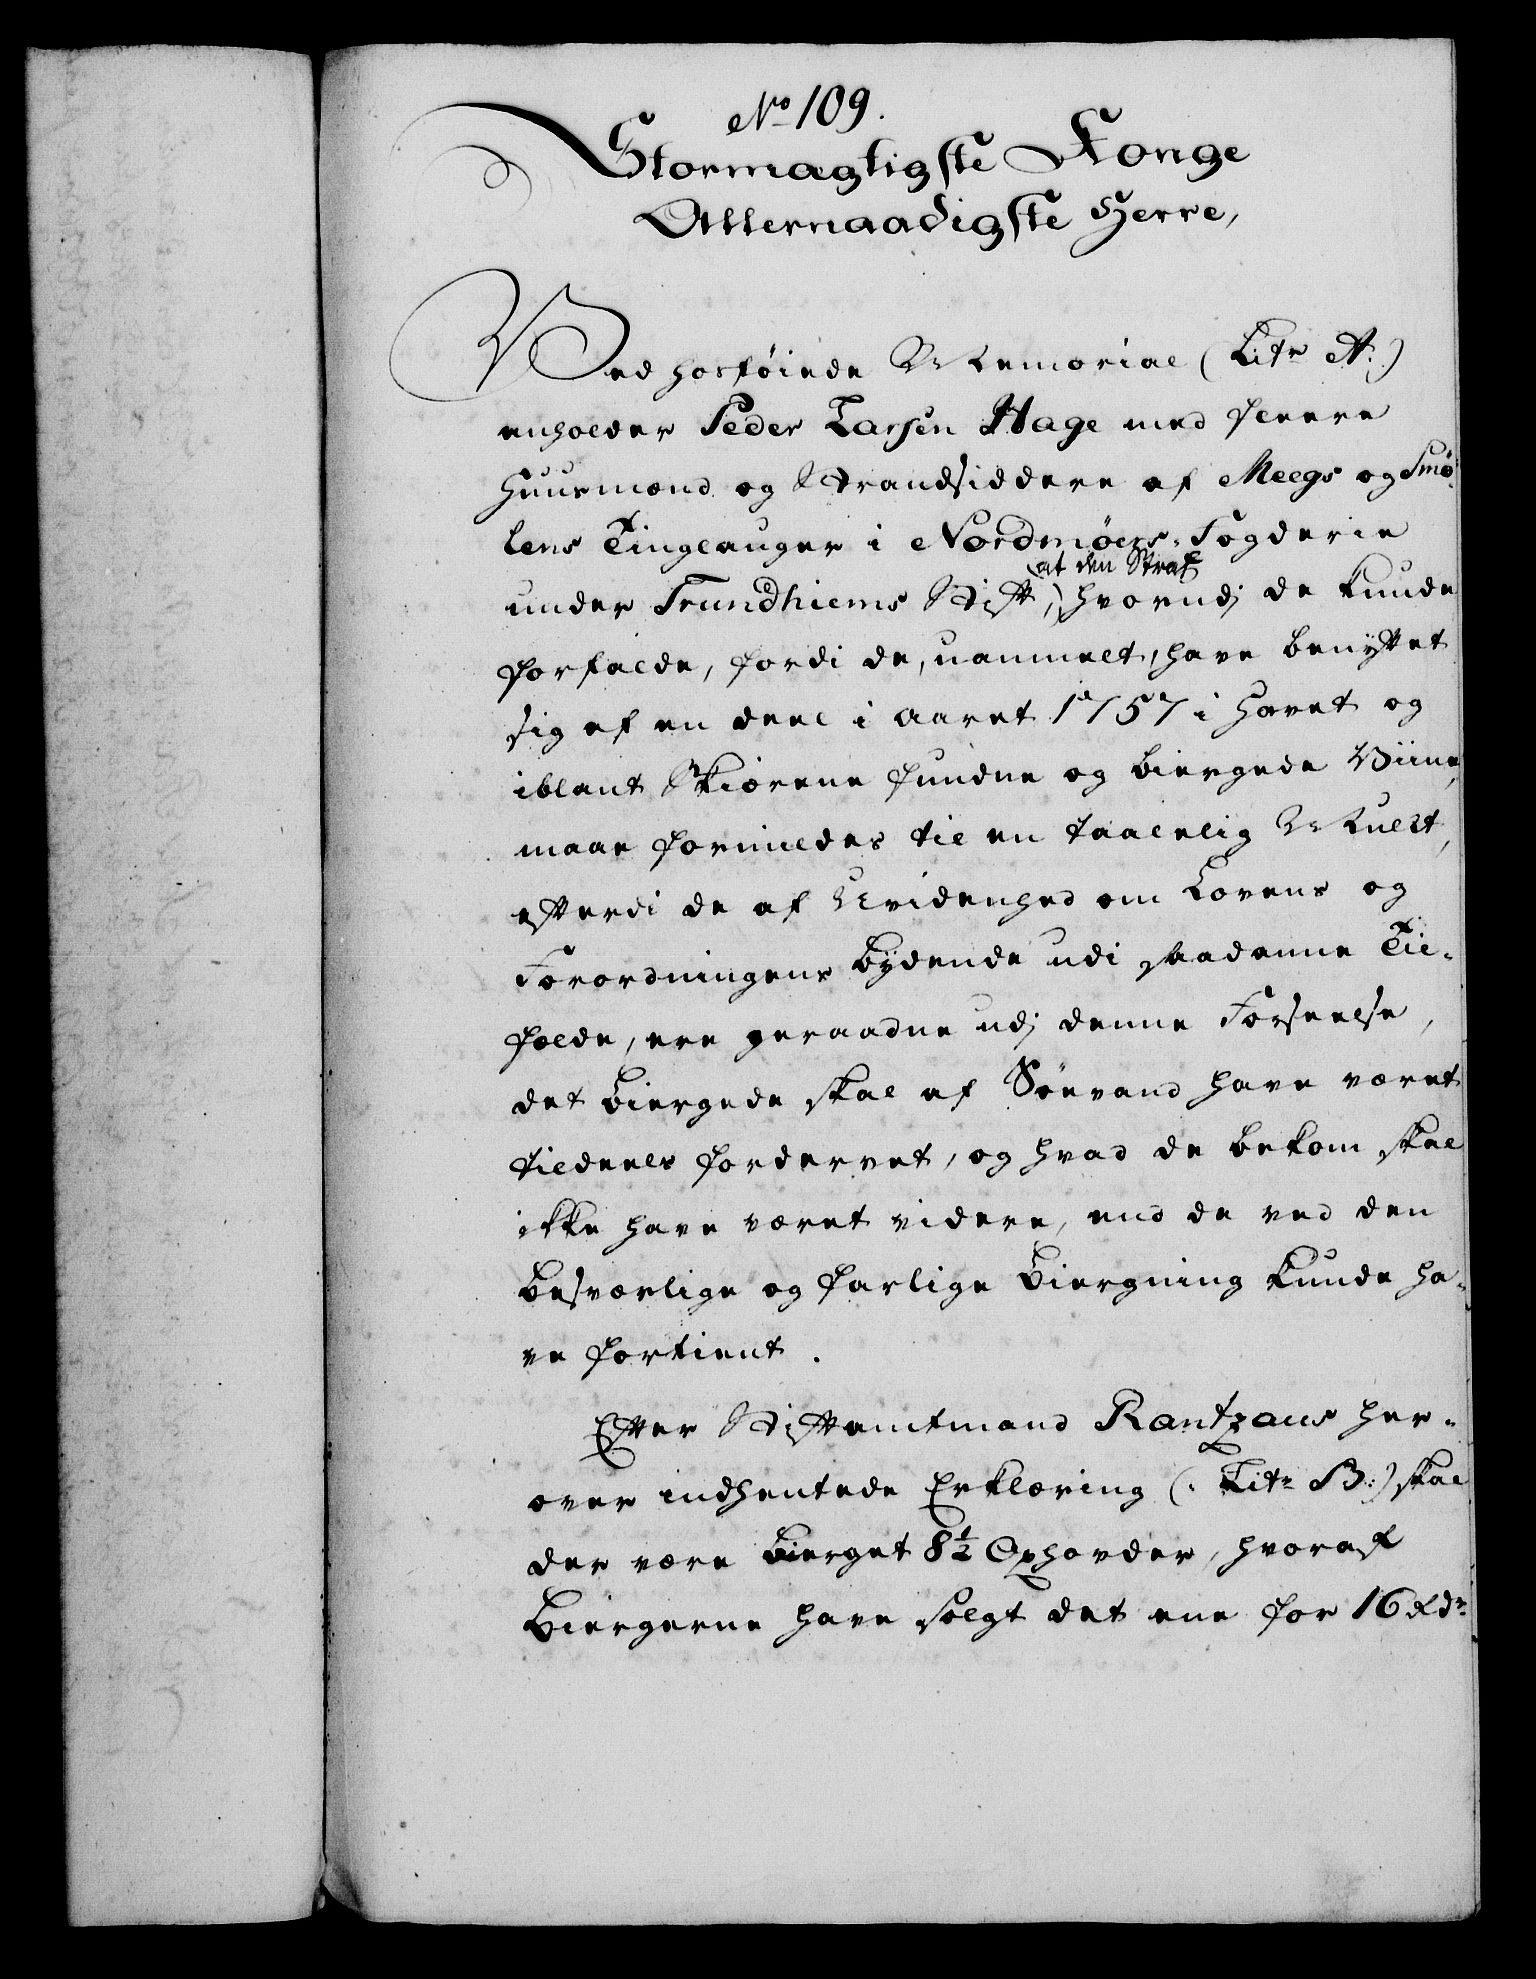 No 109.
Stormægtigste Konge
Allernaadigste Herre,
Ved hosføiede Memorial (Litr A:)
anholder Peder Larsen Hage med fleere
Huusmænd og Strandsiddere af Meegs og Smö-
lens Tinglauger i Nordmöers-Fogderie
(at den Straf
under Trundhiems Stift,) hvorudj de kunde
forfalde, fordi de, uanmelt, have benyttet
sig af en deel i Aaret 1757 i Havet og
iblant Skiærene fundne og biergede Viine,
maae formildes til en taalelig Mulct,
efterdi de af Uvidenhed om Lovens og
Forordningens bydende udi saadanne Til-
fælde, ere geraadne udj denne Forseelse,
det biergede skal af Söevand have været
tildeels fordervet, og hvad de bekom skal
ikke have været videre, end de ved den
besværlige og farlige Biergning kunde ha-
ve fortient.
Efter Stiftamtmand Rantzaus her-
over indhentede Erklæring (: Litr B:) skal
der være bierget 8½ Oxhovder, hvoraf
Biergerne have solgt det ene for 16 Rdr